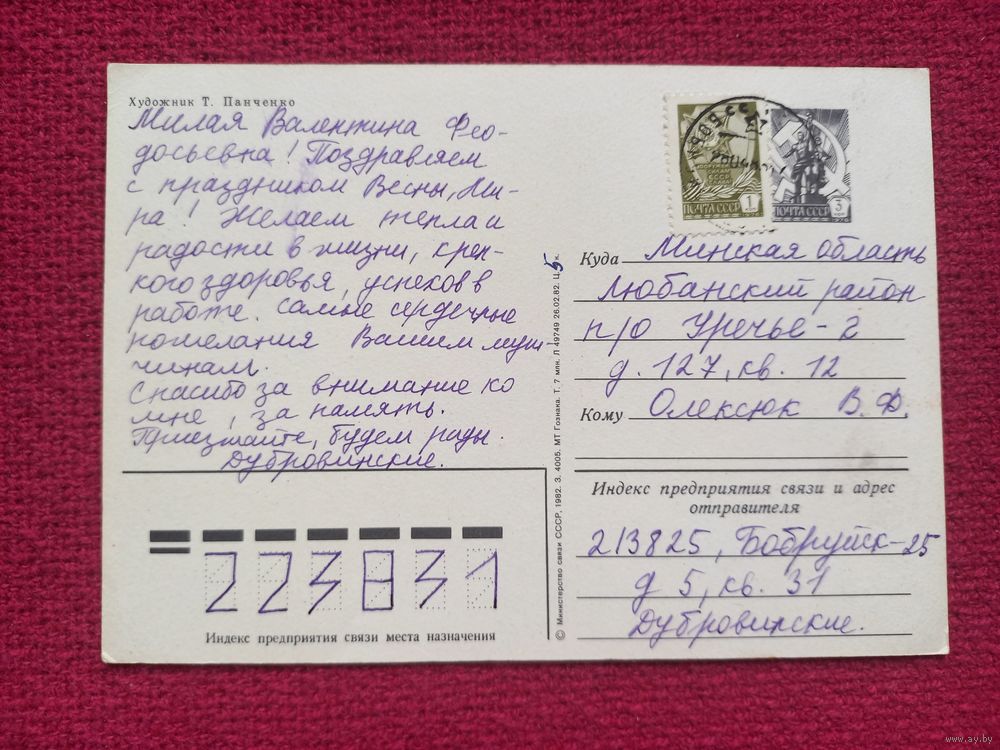 Художник Т. Панченко
Милая Валентина Фео-
досьевна! Поздравляем
с праздником Весны, Ми-
ра! Желаем тепла и
радости в жизни, креп-
кого здоровья, успехов в
работе. Самые сердечные
пожелания Вашим муж-
чинам.
Спасибо за внимание ко
мне, за память.
Приезжайте, будем рады.
Дубровинские.
ПОЧТА СССР 1 коп 1976
ПОЧТА СССР 3 коп 1976
Куда Минская область
Любанский район
п/о Уречье-2
д. 127, кв. 12
Кому Олексюк В. Ф.
Индекс предприятия связи и адрес
отправителя
213825, Бобруйск-25
д 5, кв. 31
Дубровинские.
223831
Индекс предприятия связи места назначения
© Министерство связи СССР, 1982. З. 4005. МТ Гознака. Т. 7 млн. Л 49749 26.02.82. Ц. 5 к.
www.ay.by